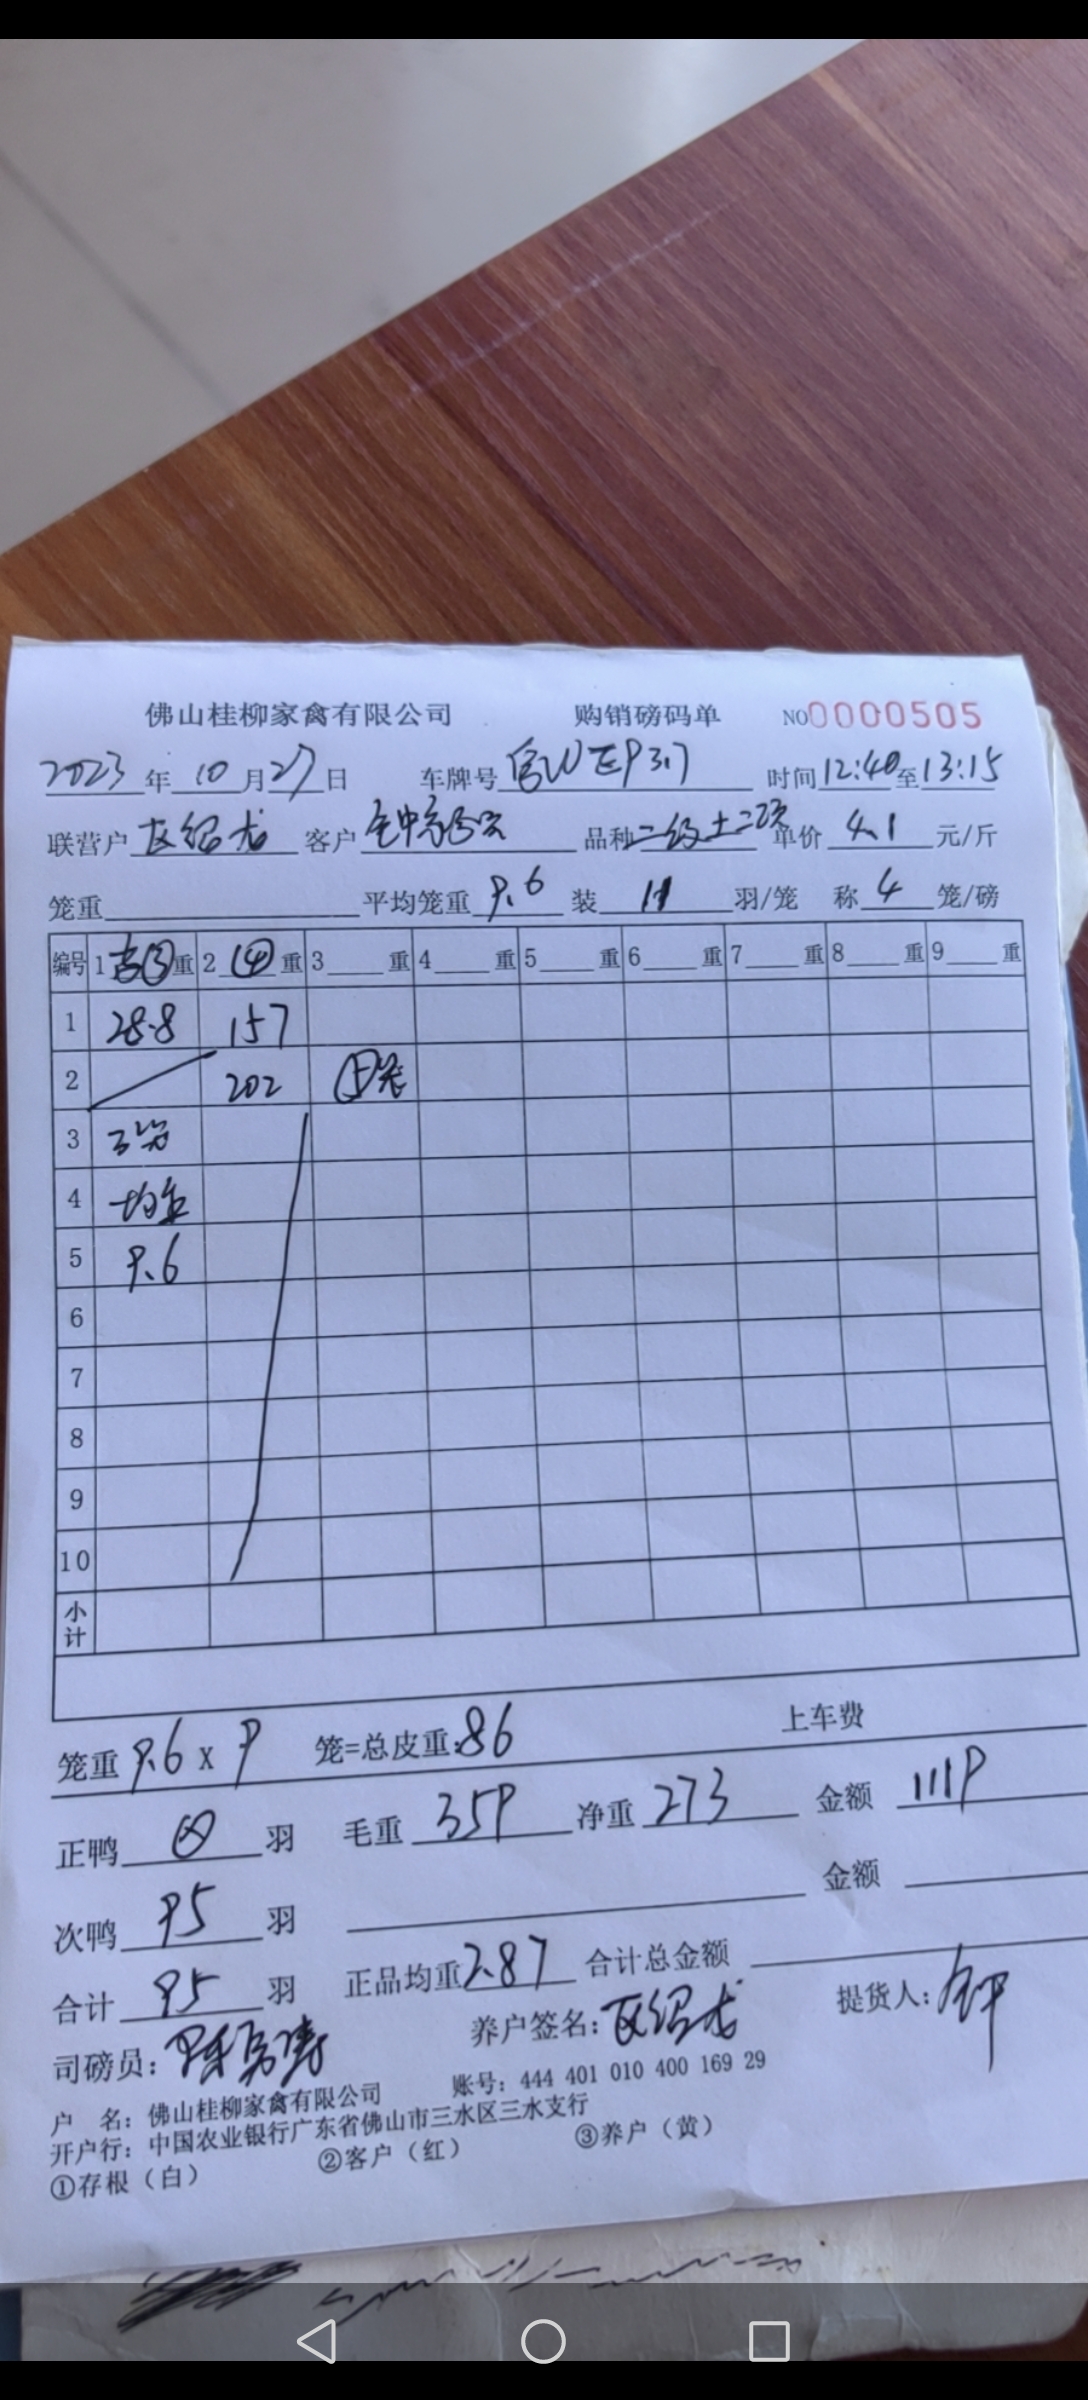 佛山桂柳家禽有限公司 购销磅码单 NO0000505
2023年10月27日 车牌号 时间12:40至13:15
联营户区绍龙 客户 品种二级土二次 单价4.1元/斤
笼重 平均笼重9.6 装11羽/笼 称4笼/磅
编号 1 ③重 2 ④重 3 重 4 重 5 重 6 重 7 重 8 重 9 重
1 28.8 157
2 202 ⑤笼
3 3笼
4 均重
5 9.6
6
7
8
9
10
小计
笼重9.6x9 笼=总皮重:86 上车费
正鸭 羽 毛重359 净重273 金额1119
次鸭95羽 金额
合计95羽 正品均重2.87 合计总金额
司磅员: 养户签名:区绍龙 提货人:钟
户 名:佛山桂柳家禽有限公司 账号:444 401 010 400 169 29
开户行:中国农业银行广东省佛山市三水区三水支行
①存根(白) ②客户(红) ③养户(黄)